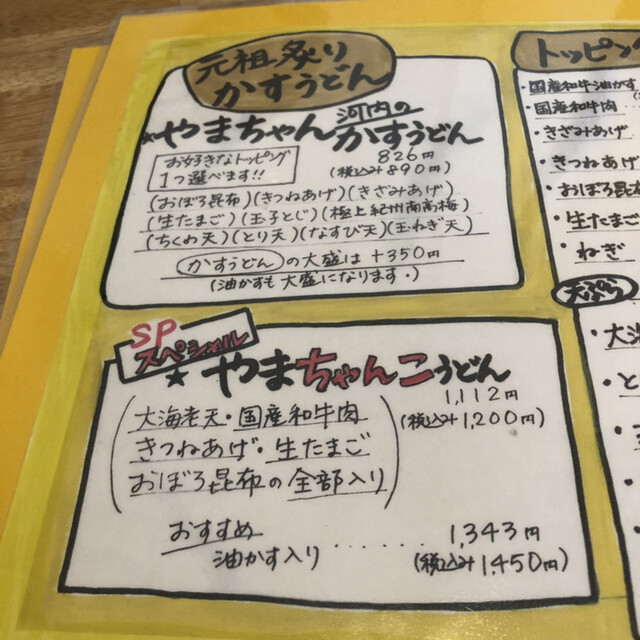 元祖炙り
かすうどん
★やまちゃん河内のかすうどん
826円
(税込み890円)
お好きなトッピング
1つ選べます!!
(おぼろ昆布)(きつねあげ)(きざみあげ)
(生たまご)(玉子とじ)(極上紀州南高梅)
(ちくわ天)(とり天)(なすび天)(玉ねぎ天)
かすうどんの大盛は+350円
(油かすも大盛になります・)
SP
スペシャル
★やまちゃんこうどん
1,112円
(税込み1,200円)
(大海老天・国産和牛肉
きつねあげ・生たまご
おぼろ昆布の全部入り)
おすすめ
油かす入り......1,343円
(税込み1,450円)
トッピング
・国産和牛油かす
・国産和牛肉
・きざみあげ
・きつねあげ
・おぼろ昆布
・生たまご
・ねぎ
天ぷら
・大海
・と